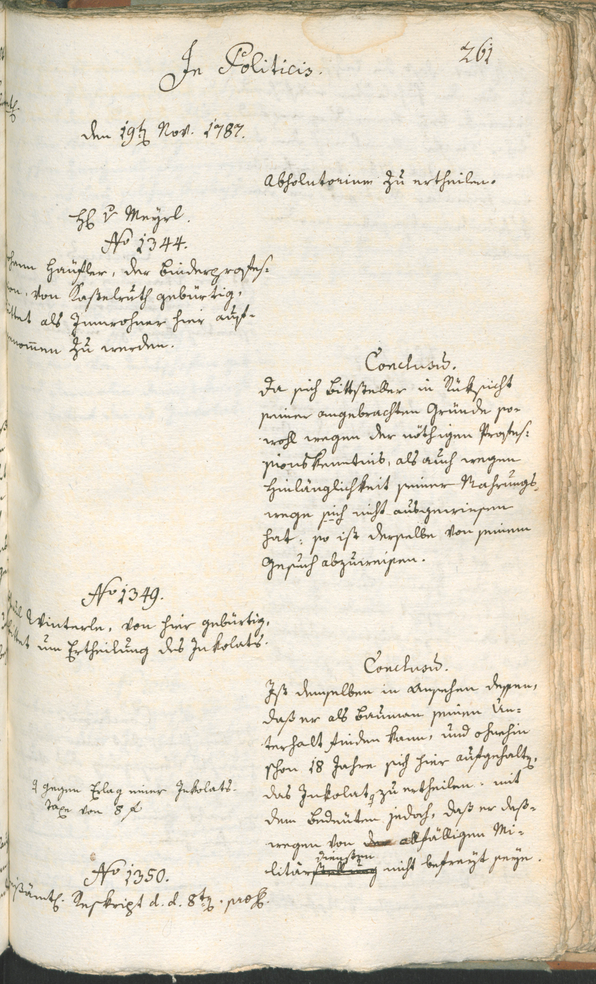 In Politicis.
261
den 19t Nov. 1787.
Absolutorium zu ertheilen.
H v Meyrl.
No 1344.
Johann Häusler, der Binderprofes:
sion, von Kastelruth gebürtig,
bittet als Innwohner hier auf-
genommen zu werden.
Conclusum.
Da sich Bittsteller in Rüksicht
seiner angebrachten Gründe so-
wohl wegen der nöthigen Profes:
sionskenntnis, als auch wegen
Hinlänglichkeit seiner Nahrungs-
wege sich nicht ausgewiesen
hat; so ist derselbe von seinem
Gesuch abzuweisen.
No 1349.
Winterle, von hier gebürtig,
bittet um Ertheilung des Inkolats.
Conclusum.
Ist demselben in Ansehen dessen,
daß er als Bauman seinen Un-
terhalt finden kann, und ohnehin
schon 18 Jahre sich hier aufgehalten,
das Inkolat zu ertheilen. mit
gegen Erlag einer Inkolats-
Taxe von 8 f
dem Bedeuten jedoch, daß er deß-
wegen von allfälligen Mi-
litärdiensten nicht befreyt seye.
No 1350.
Kreisämtl. Reskript d. d. 8t pros.